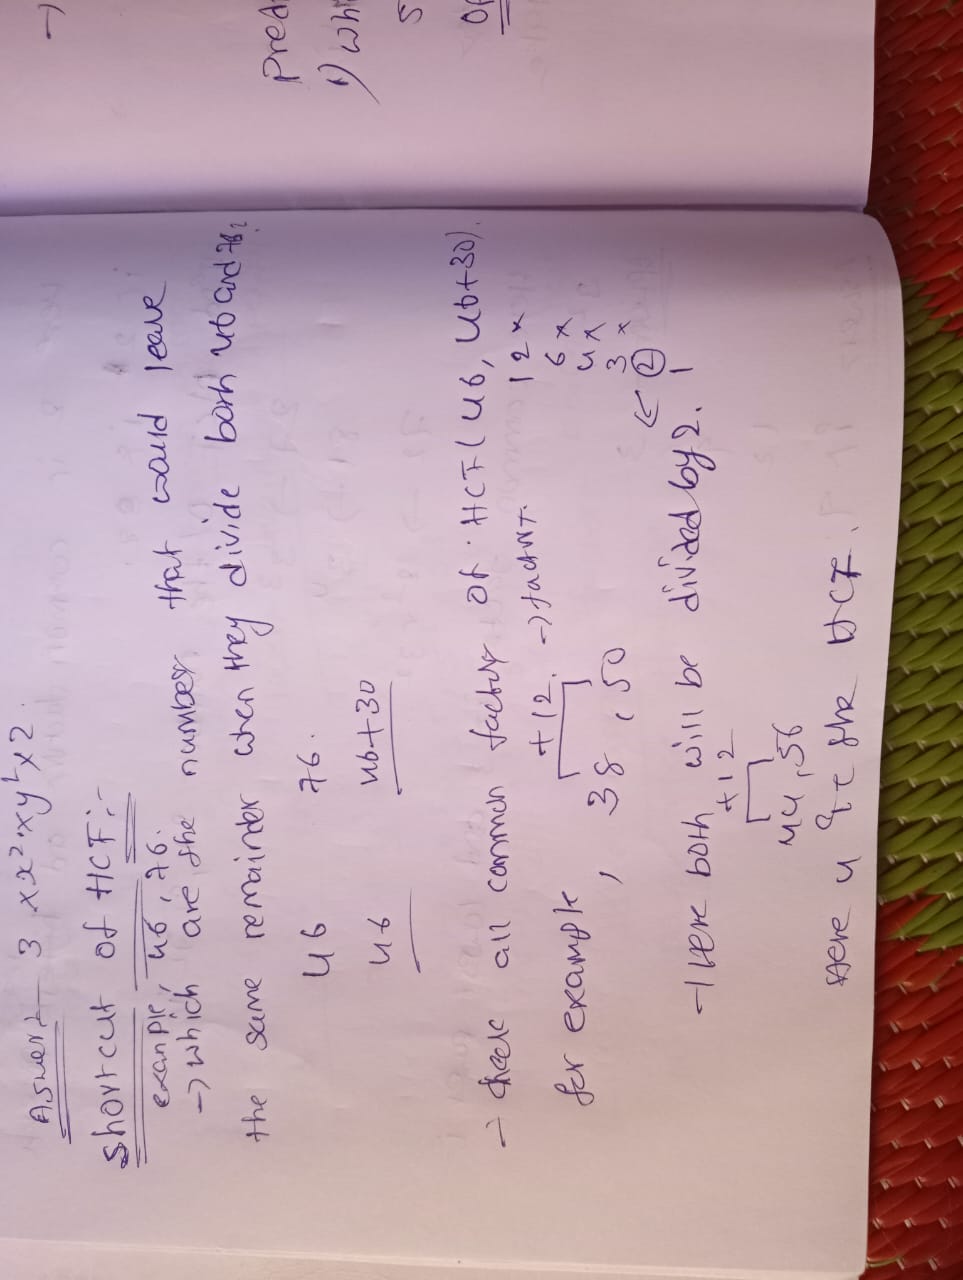 Answer :- 3 x x² x y² x 2.
Shortcut of HCF :-
example, 46, 76.
→ which are the number that would leave
the same remainder when they divide both 46 and 76?
46 76.
46 46+30
→ check all common factor of HCF (46, 46+30).
+12 → factor. 12 x
for example , 38, 50
6 x
4 x
3 x
2
1
→ Here both will be divided by 2.
+12
44, 56
Here 4 is the HCF.
Pred
1) Wh
5